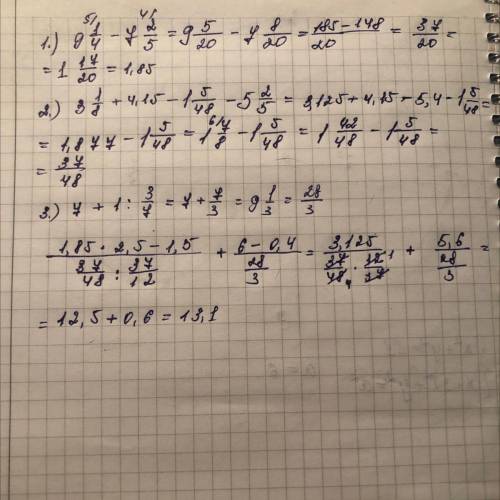 1.) 9 1/4 - 7 2/5 = 9 5/20 - 7 8/20 = (185-148)/20 = 37/20 =
= 1 17/20 = 1,85
2.) 3 1/8 + 4,15 - 1 5/48 - 5 2/5 = 3,125 + 4,15 - 5,4 - 1 5/48 =
= 1,877 - 1 5/48 = 1 7/8 - 1 5/48 = 1 42/48 - 1 5/48 =
= 37/48
3.) 7 + 1 : 3/7 = 7 + 7/3 = 9 1/3 = 28/3
(1,85 · 2,5 - 1,5)/(37/48 : 37/12) + (6 - 0,4)/(28/3) = 3,125/(37/48 · 12/37) + 5,6/(28/3) =
= 12,5 + 0,6 = 13,1